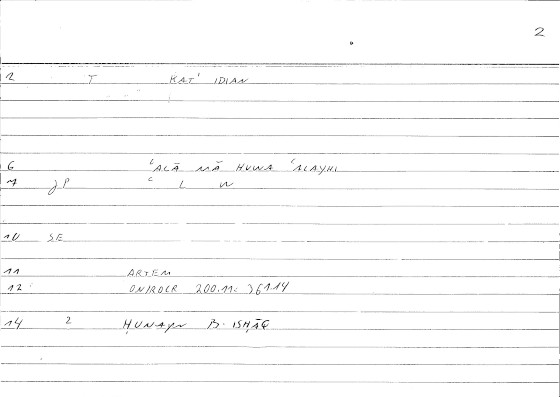 2
2 T KAT' IDIAN
6 ʿALĀ MĀ HUWA ʿALAYHI
7 JP ʿ L W
10 SE
11 ARTEM
12 ONIROCR 200.11c 361.14
14 2 ḤUNAYN B. ISḤĀQ